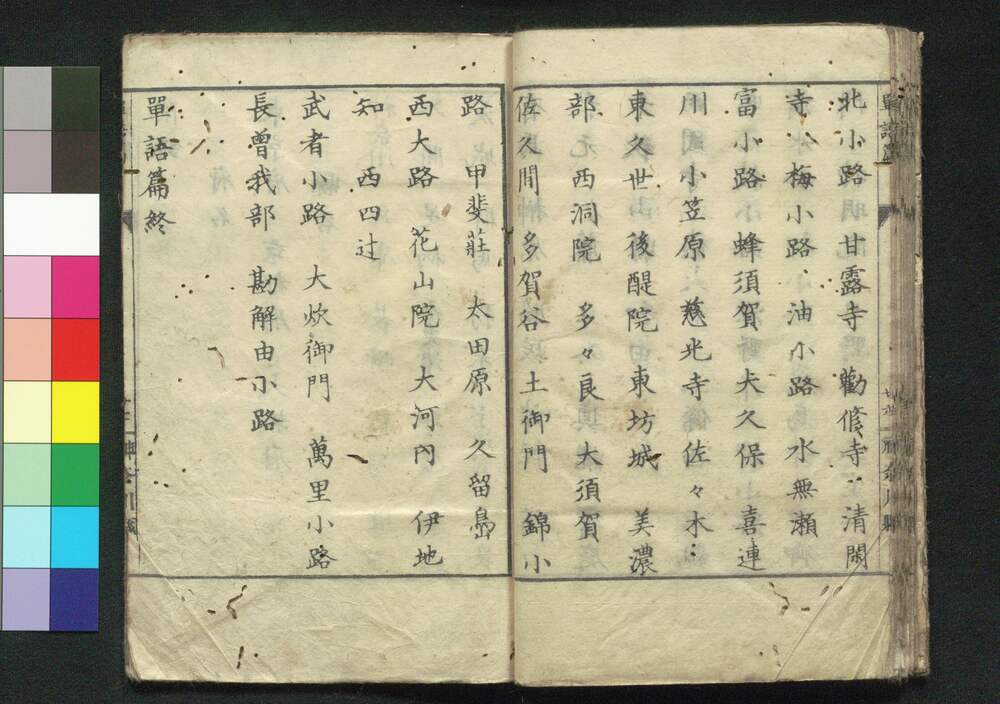 北小路 甘露寺 勸修寺 清閑
寺 梅小路 油小路 水無瀬
富小路 蜂須賀 大久保 喜連
川 小笠原 慈光寺 佐々木
東久世 後醍院 東坊城 美濃
部 西洞院 多々良 大須賀
佐久間 多賀谷 土御門 錦小
路 甲斐莊 太田原 久留島
西大路 花山院 大河内 伊地
知 西四辻
武者小路 大炊御門 萬里小路
長曽我部 勘解由小路
單語篇終